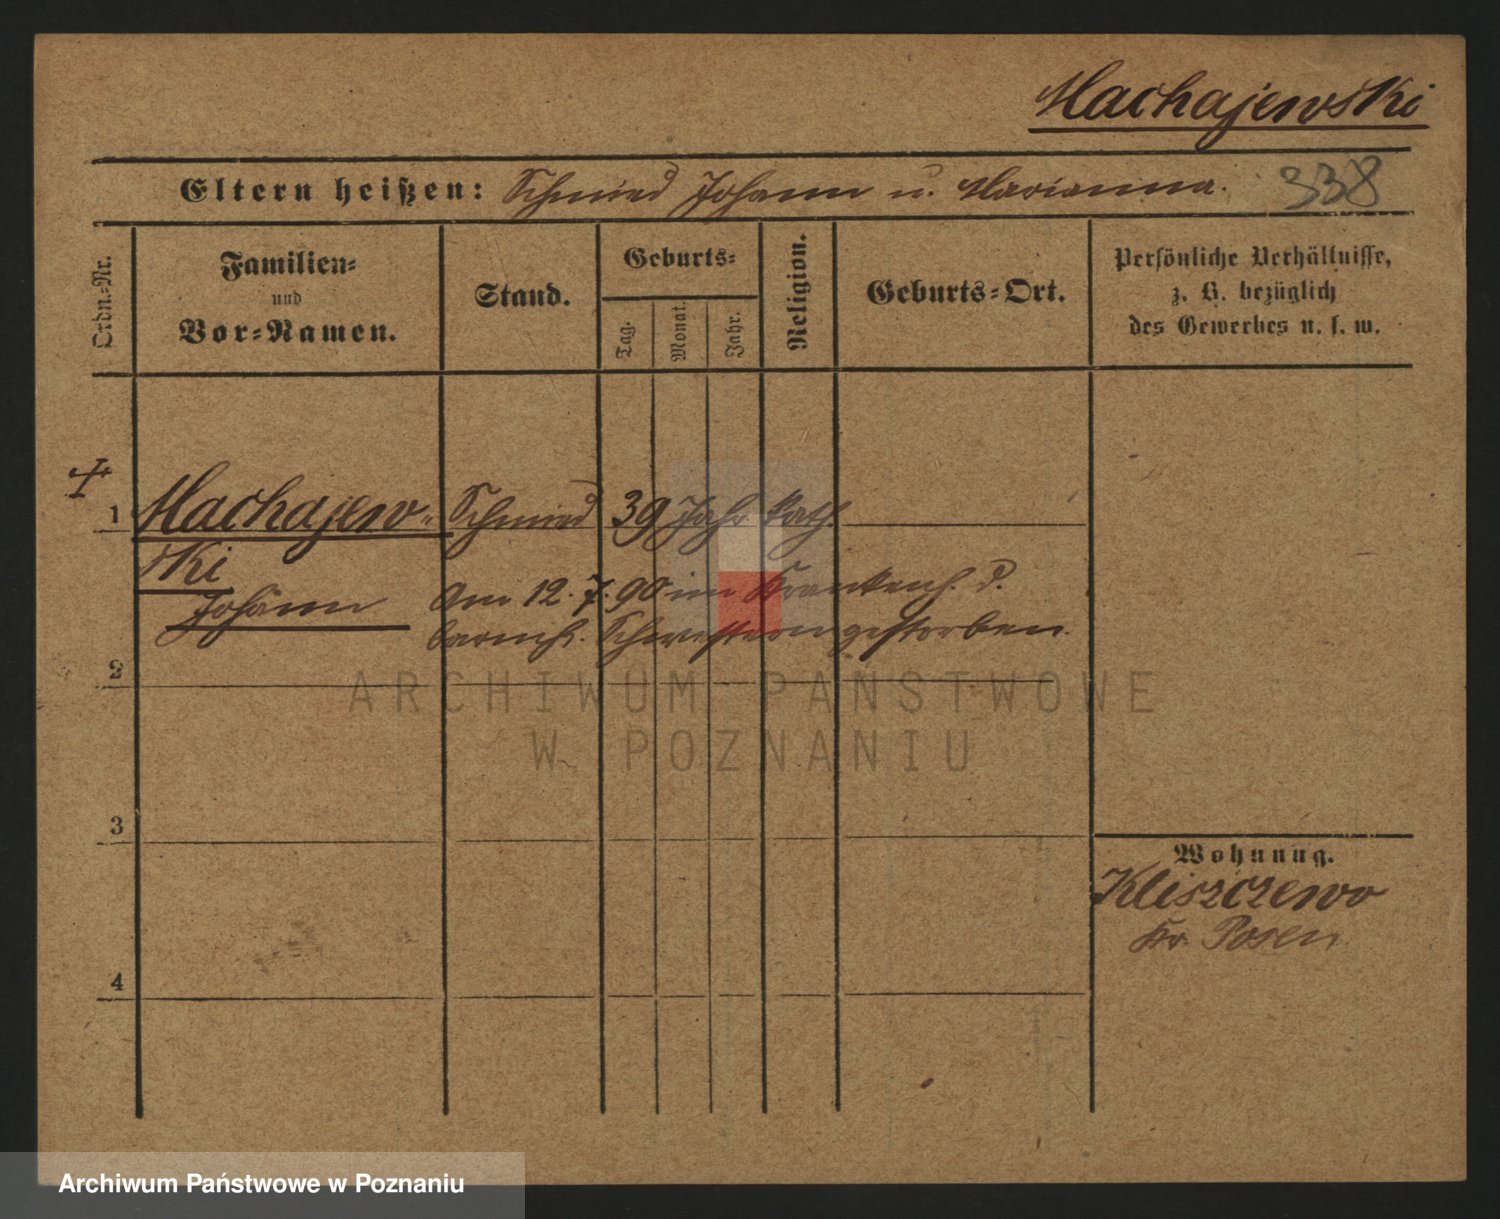 Machajewski
Eltern heißen: Schmied Johann u. Marianna. 338
Ordn.-Nr.
Familien-
und
Vor-Namen.
Stand.
Geburts-
Tag.
Monat.
Jahr.
Religion.
Geburts-Ort.
Persönliche Verhältnisse,
z. B. bezüglich
des Gewerbes u. s. w.
1 Machajew- Schmied 39 Jahr kath.
ski
Johann am 12.7.90 im Krankenh. d.
barmh. Schwestern gestorben.
2
ARCHIWUM PAŃSTWOWE
W POZNANIU
3
Wohnung.
Kliszczewo
Kr. Posen
4
Archiwum Państwowe w Poznaniu